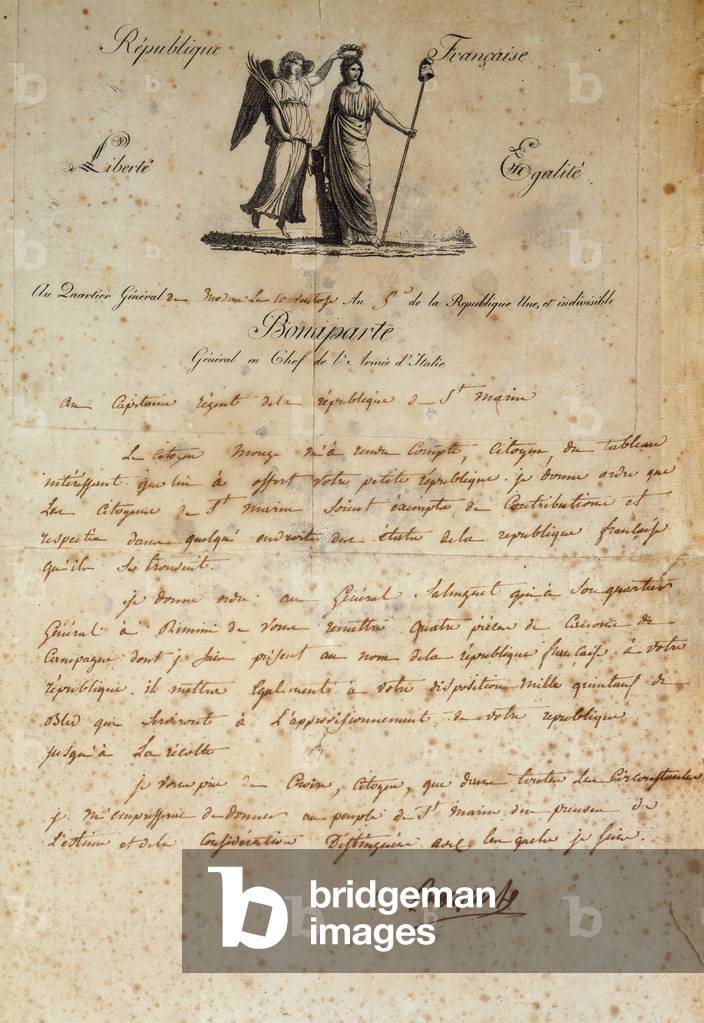 République Française
Liberté Egalité
Au Quartier Général de Modene Le 10 ventose An 5e de la Republique Une, et indivisible
Bonaparte
Général en Chef de l'Armée d'Italie
au Capitaine régent dela république de St marin
Le citoyen Monge m'à rendu Compte, Citoyen, du tableau
intéressent que lui à offert votre petite république. je donne ordre que
Les Citoyens de St marin soient exempts de Contributions et
respectés dans quelqué endroit des états dela republique francaise
qu'ils se trouvent.
je donne ordre au Général Sahuguet qui à son quartier
Général à Rimini de vous remettre quatre pièces de Canons de
Campagne dont je fais présent au nom dela république francaise à votre
république. il mettra Egalement à votre disposition Mille quintaux de
Bled qui serviront à L'approvisionnement de votre republique
jusqu'à La récolte
je vous prie de Croire, Citoyen, que dans toutes Les Circonstances
je m'empresserai de donner au peuple de St Marin des preuves de
L'estime et dela Considération Distinguée avec lesquelles je suis.
Bonaparte
bridgeman
images